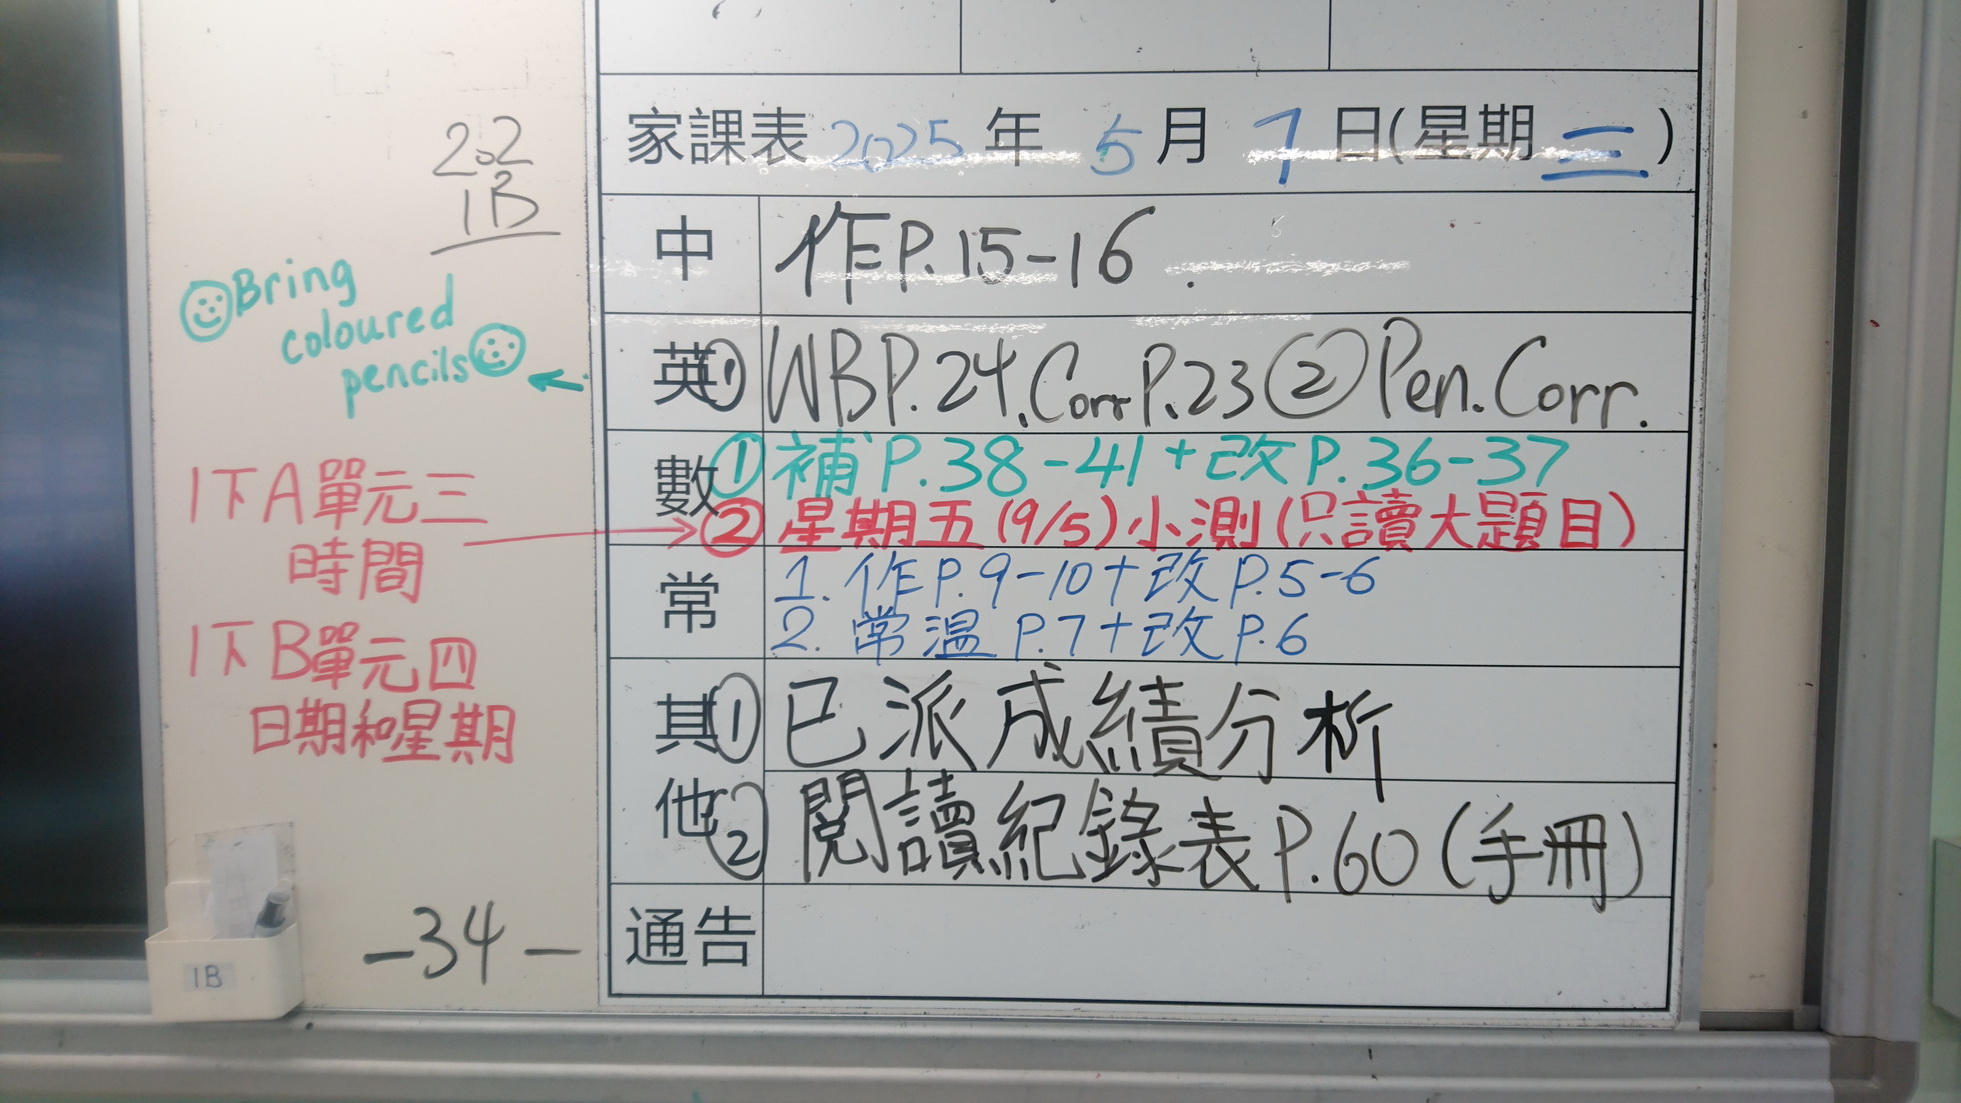 202
1B
Bring
coloured
pencils
1下A單元三
時間
1下B單元四
日期和星期
-34-
1B
家課表 2025 年 5 月 7 日(星期三)
中 作P.15-16.
英 ① WBP.24, Corr P.23 ② Pen. Corr.
數 ① 補P.38-41+改P.36-37
② 星期五(9/5)小測(只讀大題目)
常 1. 作P.9-10+改P.5-6
2. 常温 P.7+改P.6
其他 ① 已派成績分析
② 閱讀紀錄表P.60(手冊)
通告